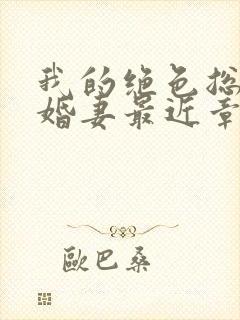 我的绝色总
婚妻最近章
歐巴桑